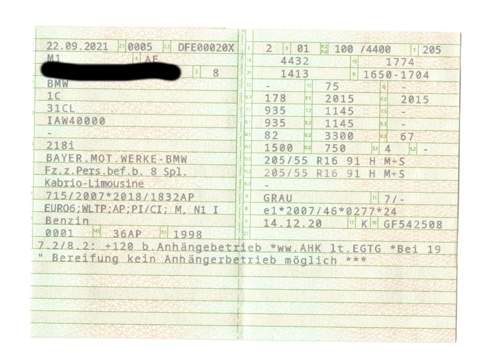 22.09.2021 0005 DFE00020X
M1 AF
8
BMW
1C
31CL
IAW40000
-
218i
BAYER.MOT.WERKE-BMW
Fz.z.Pers.bef.b. 8 Spl.
Kabrio-Limousine
715/2007*2018/1832AP
EURO6;WLTP;AP;PI/CI; M, N1 I
Benzin
0001 36AP 1998
2 01 100 /4400 205
4432 1774
1413 1650-1704
- 75 -
178 2015 2015
935 1145 -
935 1145 -
82 3300 67
1500 750 4 -
205/55 R16 91 H M+S
205/55 R16 91 H M+S
-
GRAU 7/-
e1*2007/46*0277*24
14.12.20 K GF542508
7.2/8.2: +120 b.Anhängebetrieb *ww.AHK lt.EGTG *Bei 19
" Bereifung kein Anhängerbetrieb möglich ***